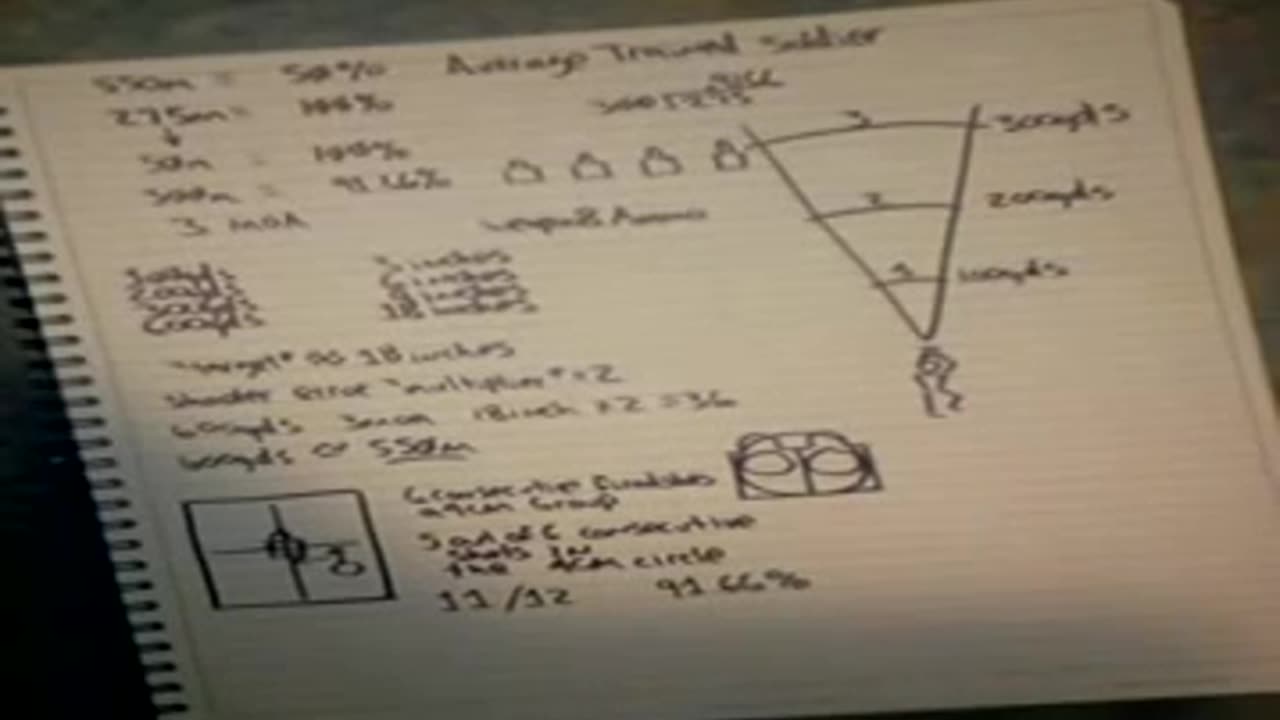 550m = 50% Average Trained Soldier
275m = 100%
50m = 100%
300m = 91.66%
3 MOA
Weapon & Ammo
3 300yds
2 200yds
1 100yds
3 inches
6 inches
inches
600yds 18 inches
"target" is 18 inches
shooter error "multiplier" = 2
600yds 3moa 18inch x2 = 36
600yds or 550m
6 consecutive
4cm Group
5 out of 6 consecutive
shots in
the 4cm circle
11/12 91.66%